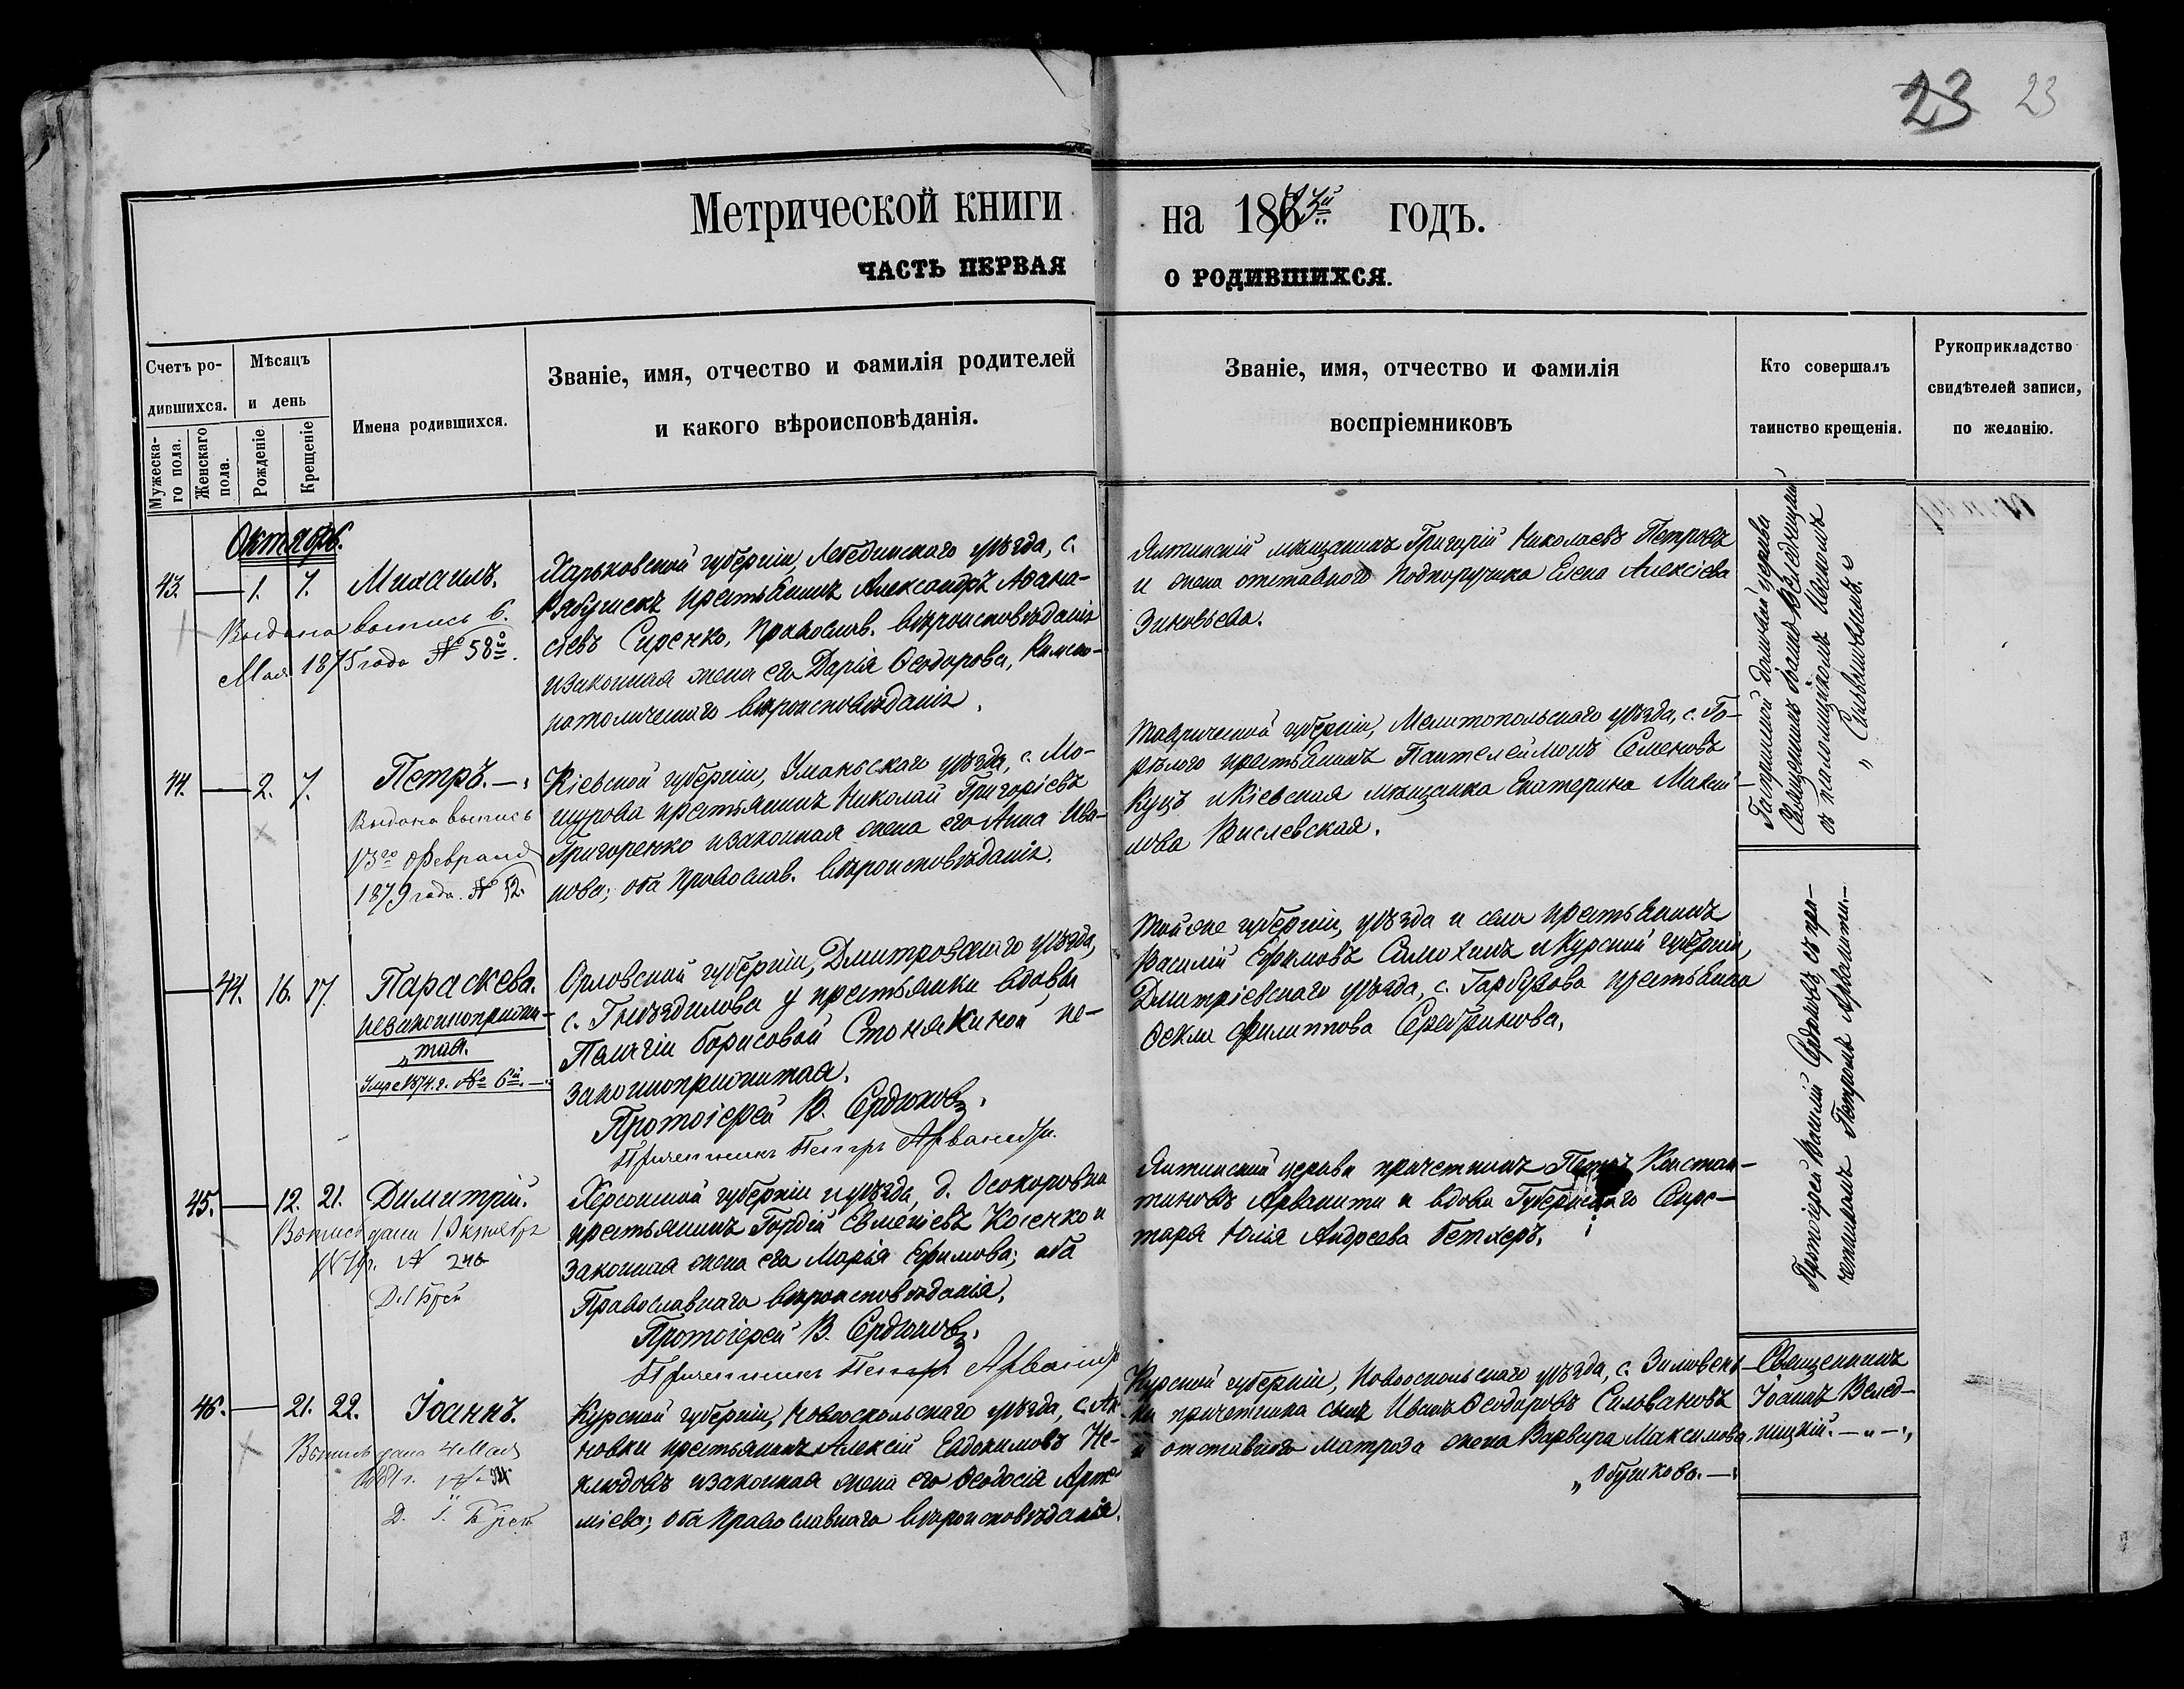 23 23
Метрической книги на 1873й годъ.
ЧАСТЬ ПЕРВАЯ О РОДИВШИХСЯ.
Счетъ ро-
дившихся.
Мужеска-
го пола.
Женскаго
пола.
Мѣсяцъ
и день
Рожденіе
Крещеніе
Имена родившихся.
Званіе, имя, отчество и фамилія родителей
и какого вѣроисповѣданія.
Званіе, имя, отчество и фамилія
воспріемниковъ
Кто совершалъ
таинство крещенія.
Рукоприкладство
свидѣтелей записи,
по желанію.
Октябрь.
43. — 1. 7. Михаилъ.
Выдана выпись 6.
Мая 1875 года № 58й.
Харьковской губерніи, Лебединскаго уѣзда, с.
Рябушекъ крестьянинъ Александръ Аѳана-
сіевъ Сиренко, Православ. вѣроисповѣданія
и законная жена его Дарія Ѳеодорова, Римско-
католическаго вѣроисповѣданія.
Ялтинскій мѣщанинъ Григорій Николаевъ Петровъ
и жена отставнаго Подпоручика Елена Алексіева
Зиновьева.
44. — 2. 7. Петръ. —
Выдана выпись
13го Февраля
1879 года. № 52.
Кіевской губерніи, Уманьскаго уѣзда, с. Мо-
шурова крестьянинъ Николай Григоріевъ
Григоренко и законная жена его Анна Ива-
нова; оба Православ. вѣроисповѣданія.
Таврической губерніи, Мелитопольскаго уѣзда, с. Го-
рѣлого крестьянинъ Пантелеймонъ Семеновъ
Куцъ и Кіевская мѣщанка Екатерина Макси-
мова Вислевская.
Священникъ Іоаннъ
съ псаломщикомъ
„ Сильвановымъ.
— 44. 16. 17. Параскева.
незаконноприжи-
„тая.
Умре 1874. г. № 6й. —
Орловской губерніи, Дмитровскаго уѣзда,
с. Гнѣздилова у крестьянки вдовы
Пелагіи Борисовой Стонякиной не-
законноприжитая.
Протоіерей В. Сердюковъ.
Причетникъ Петръ Арванити.
Той же губерніи, уѣзда и села крестьянинъ
Василій Ефимовъ Самохинъ и Курской губерніи,
Дмитріевскаго уѣзда, с. Гарбузова крестьянка
Ѳекла Филиппова Серебрикова.
Протоіерей Василій Сердюковъ съ при-
четникомъ Петромъ Арванити. —
45. — 12. 21. Димитрій.
Выпись дана 1 Октября
№ 246
Херсонской губерніи и уѣзда, д. Осокоровки
крестьянинъ Гордій Евменіевъ Косенко и
законная жена его Марія Ефимова; оба
Православнаго вѣроисповѣданія.
Протоіерей В. Сердюковъ.
Причетникъ Петръ Арванити
Ялтинской церкви причетникъ Петръ Констан-
тиновъ Арванити и вдова Губернскаго Секре-
таря Юлія Андреева Бетхеръ.
46. — 21. 22. Іоаннъ.
Выпись дана 4 Мая
Курской губерніи, Новооскольскаго уѣзда, с. Ан-
новки крестьянинъ Алексій Евдокимовъ Не-
клюдовъ и законная жена его Ѳеодосія Арте-
міева; оба Православнаго вѣроисповѣданія.
Курской губерніи, Новооскольскаго уѣзда, с. Зимовень-
ки причетника сынъ Иванъ Ѳеодоровъ Сильвановъ
и отставнаго матроза жена Варвара Максимова
„ Обушкова. —
Священникъ
Іоаннъ Велед-
ницкій. — „ —